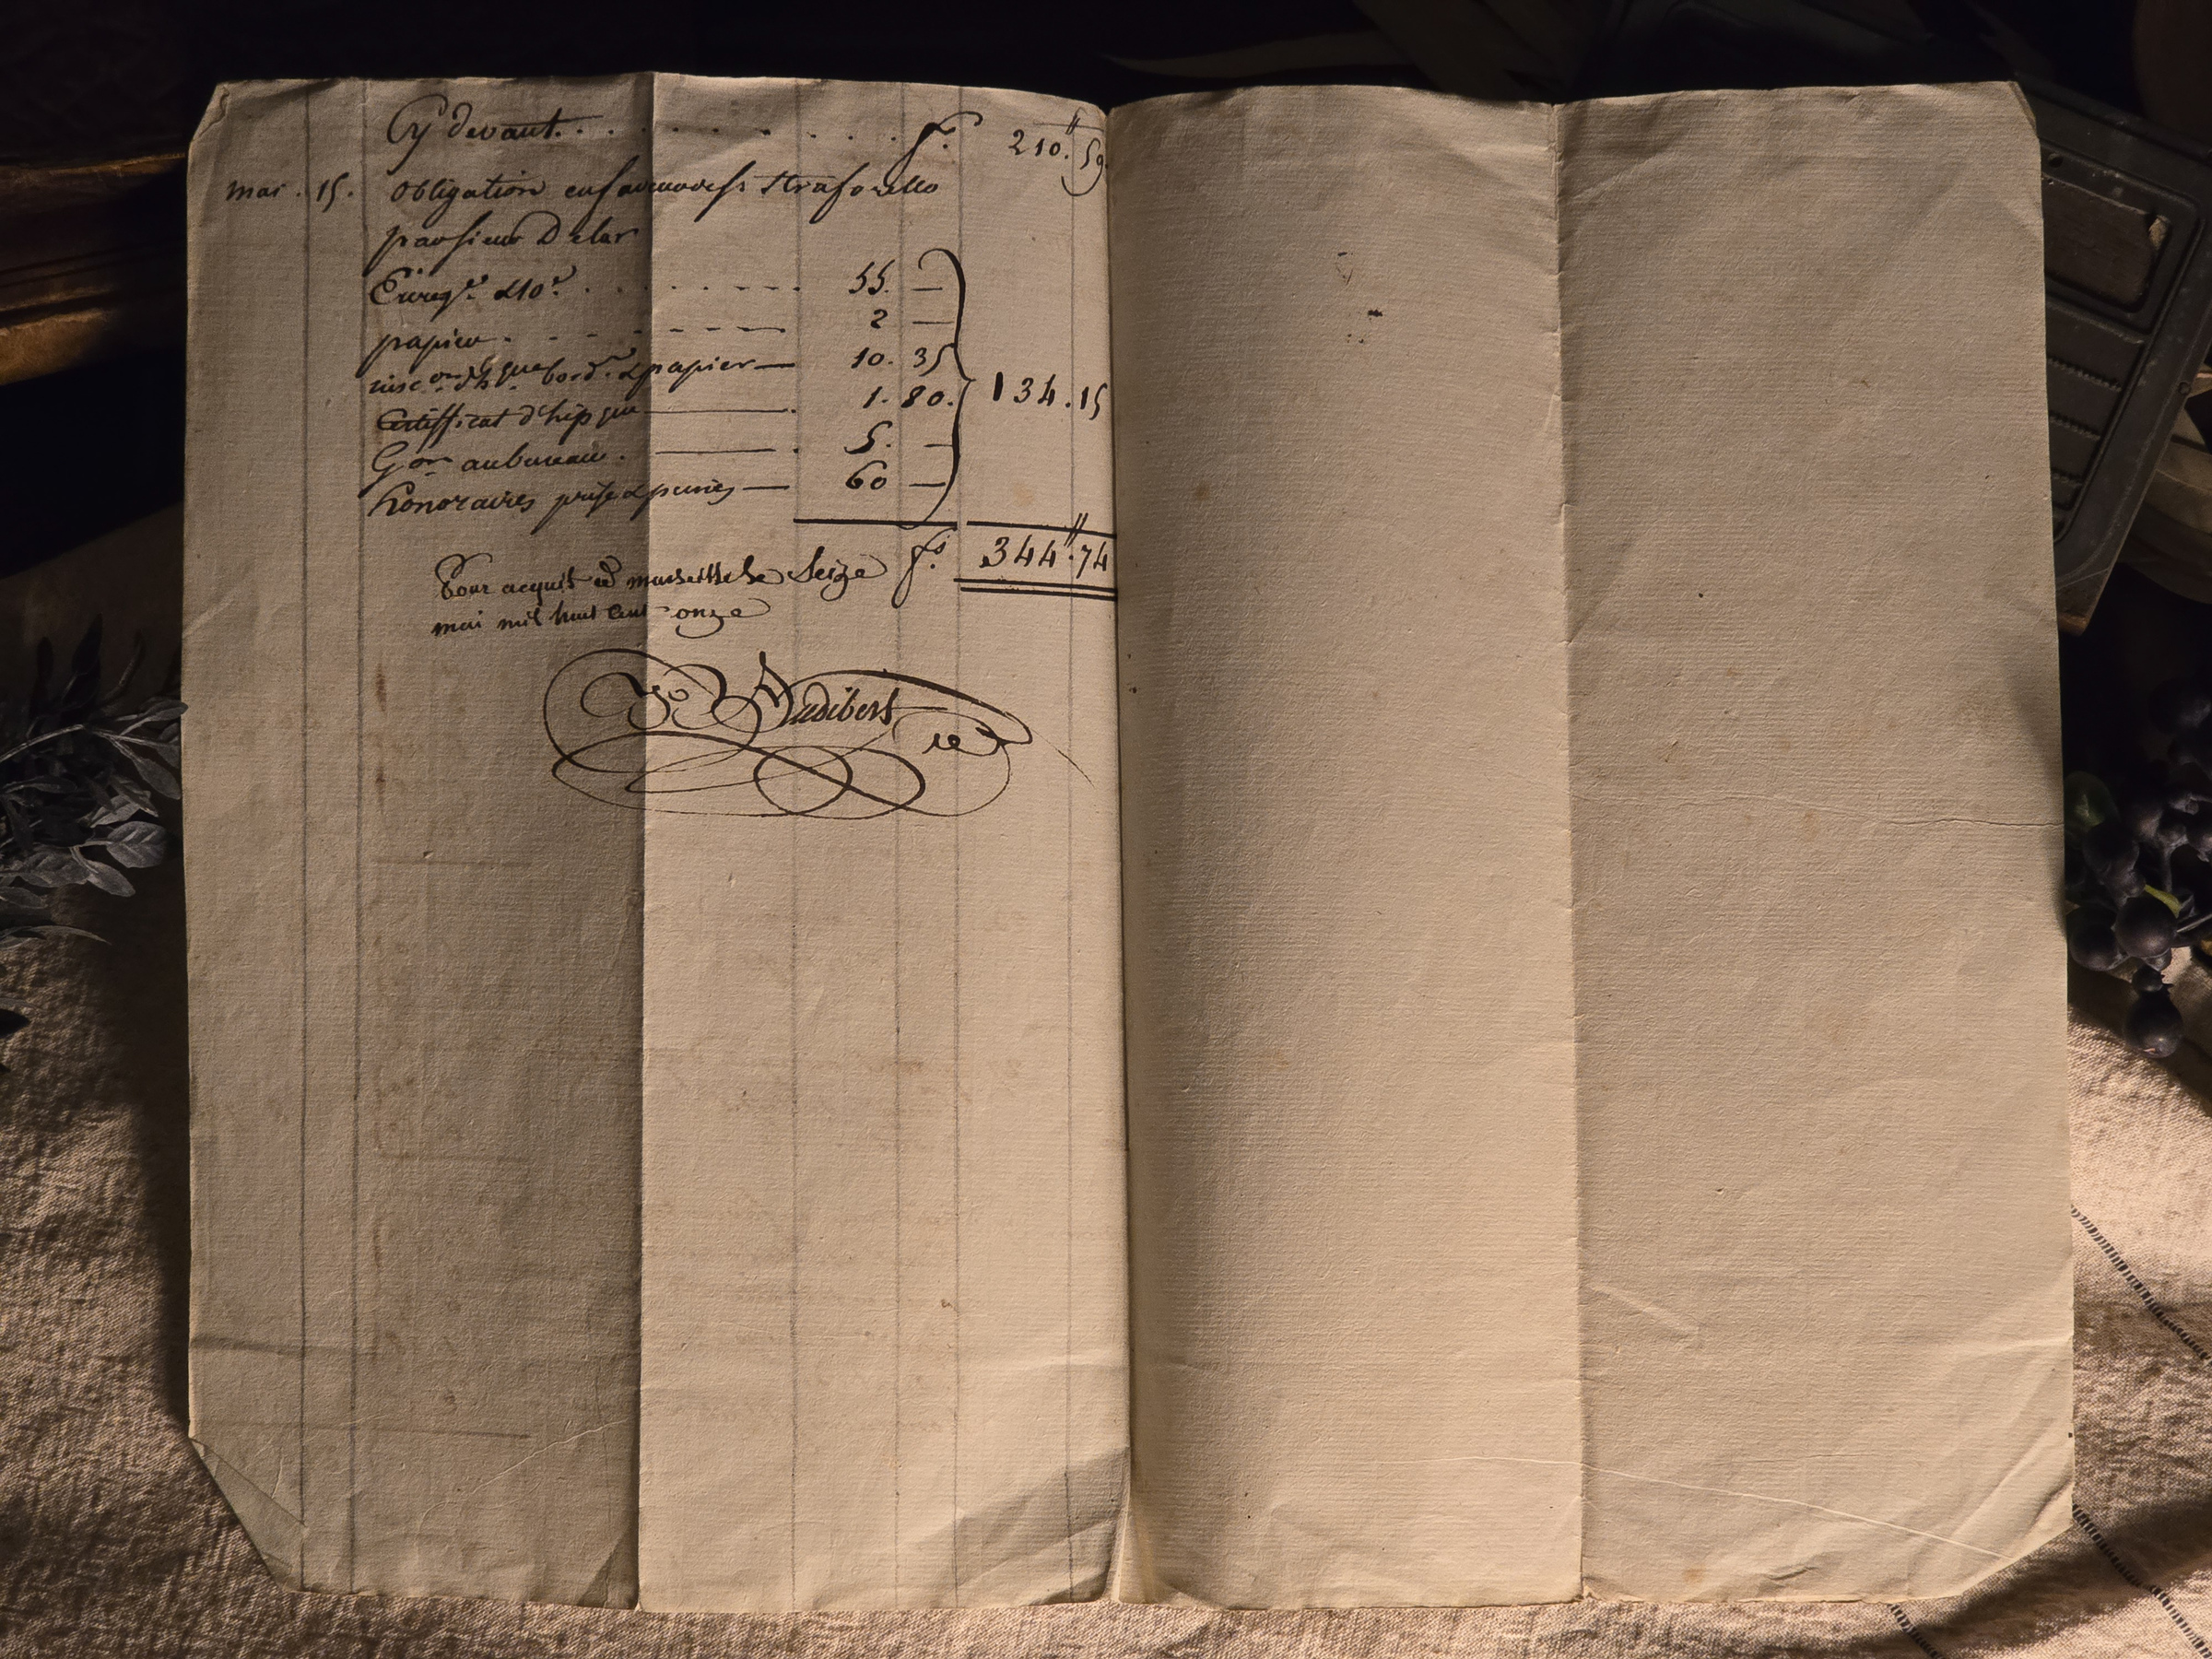 Cy devant. . . . . . . . . . . f. 210. 59.
mai. 15. obligation en faveur de ss Straforello
par sieur Delar
Enregt. & 10e. . . . . . . . 55. —
papier. - - - - - - - 2 —
insc on d'hque bord. & papier — 10. 35
Certifficat d'hipque — 1. 80. 134. 15
G on au bureau. — 5. —
honoraires prise & peines — 60 —
fs. 344. 74
Pour acquit à marseille le Seize
mai mil huit cent onze
Audibert